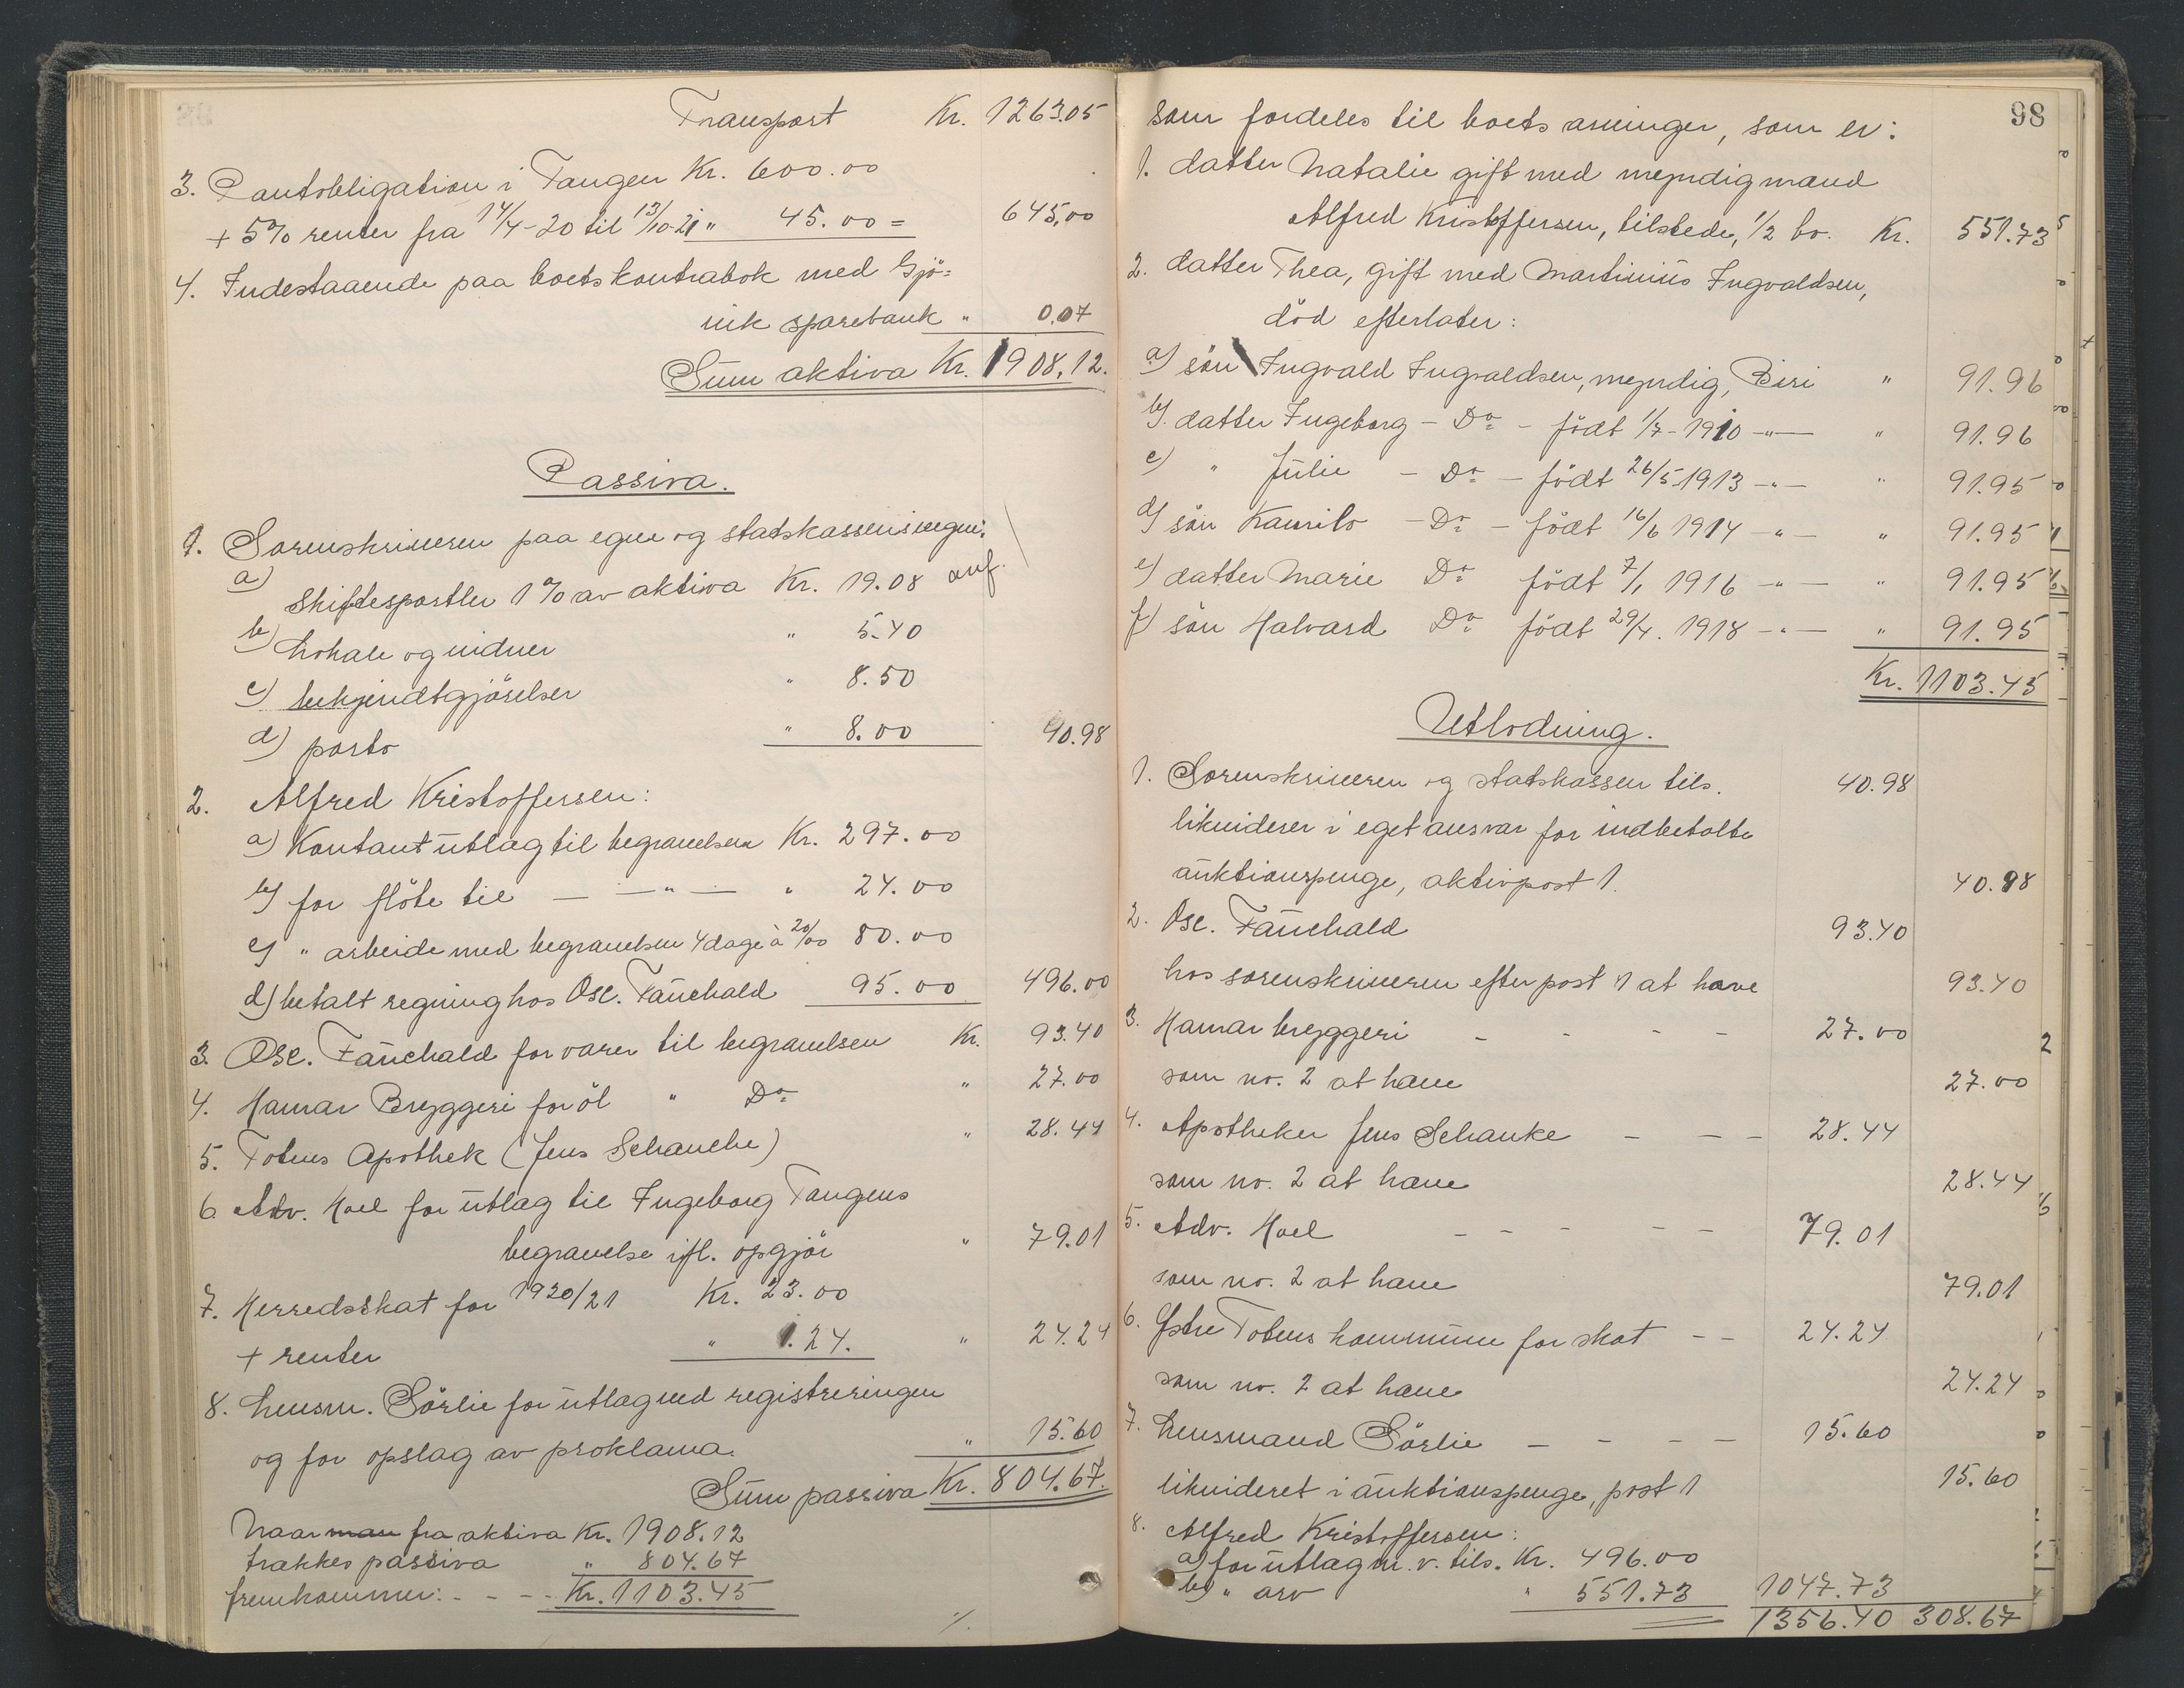 Transport Kr. 1263.05
3. Pantobligation i Tangen Kr. 600.00
+ 5% renter fra 14/4-20 til 13/10-21 " 45.00 = 645,00
4. Indestaaende paa boets kontrabok med Gjö=
vik sparebank " 0.07
Sum aktiva Kr. 1908.12.
Passiva.
1. Sorenskriveren paa egne og statskassens vegne:
a) Skiftesportler 1% av aktiva Kr. 19.08 anf.
b) Lokale og vidner " 5.40
c) bekjendtgjörelser " 8.50
d) porto " 8.00 40.98
2. Alfred Kristoffersen:
a) Kontant utlag til begravelsen Kr. 297.00
b) for flöte til — " — " 24.00
c) " arbeide med begravelsen 4 dage à 20/00 80.00
d) betalt regning hos Osc. Fauchald 95.00 496.00
3. Osc. Fauchald for varer til begravelsen Kr. 93.40
4. Hamar Bryggeri for öl " Do " 27.00
5. Totens Apothek (Jens Schanche) " 28.44
6. Adv. Hoel for utlag til Ingeborg Tangens
begravelse ifl. opgjör " 79.01
7. Herredsskat for 1920/21 Kr. 23.00
+ renter " 1.24. " 24.24
8. Lensm. Sörlie for utlag ved registreringen
og for opslag av proklama. " 15.60
Sum passiva Kr. 804.67.
Naar man fra aktiva Kr. 1908.12
trækkes passiva " 804.67
fremkommer: - - - Kr. 1103.45
%
98
som fordeles til boets arvinger, som er:
1. datter Natalie gift med myndig mand
Alfred Kristoffersen, tilstede, 1/2 bo. Kr. 551.73
2. datter Thea, gift med Martinius Ingvaldsen,
död efterlater:
a) sön Ingvald Ingvaldsen, myndig, Biri " 91.96
b) datter Ingeborg - Do - födt 1/7-1910 -"- " 91.96
c) " Julie - Do - födt 26/5 1913 -"- " 91.95
d) sön Kaurilo - Do - födt 16/6 1914 -"- " 91.95
e) datter Marie Do födt 7/1 1916 -"- " 91.95
f) sön Halvard Do födt 29/4. 1918 -"- " 91.95
Kr. 1103.45
Utlodning.
1. Sorenskriveren og statskassen tils. 40.98
likviderer i eget ansvar for indbetalte
auktionspenge, aktivpost 1. 40.98
2. Osc. Fauchald 93.40
hos sorenskriveren efter post 1 at have 93.40
3. Hamar bryggeri - - - 27.00
som no. 2 at have 27.00
4. Apotheker Jens Schanke - - - 28.44
som no. 2 at have 28.44
5. Adv. Hoel - - - - 79.01
som no. 2 at have 79.01
6. Östre Totens kommune for skat - - 24.24
som no. 2 at have 24.24
7. Lensmand Sörlie - - - - 15.60
likvideret i auktionspenge, post 1 15.60
8. Alfred Kristoffersen:
a) for utlag m.v. tils. Kr. 496.00
b) " arv " 551.73 1047.73
1356.40 308.67